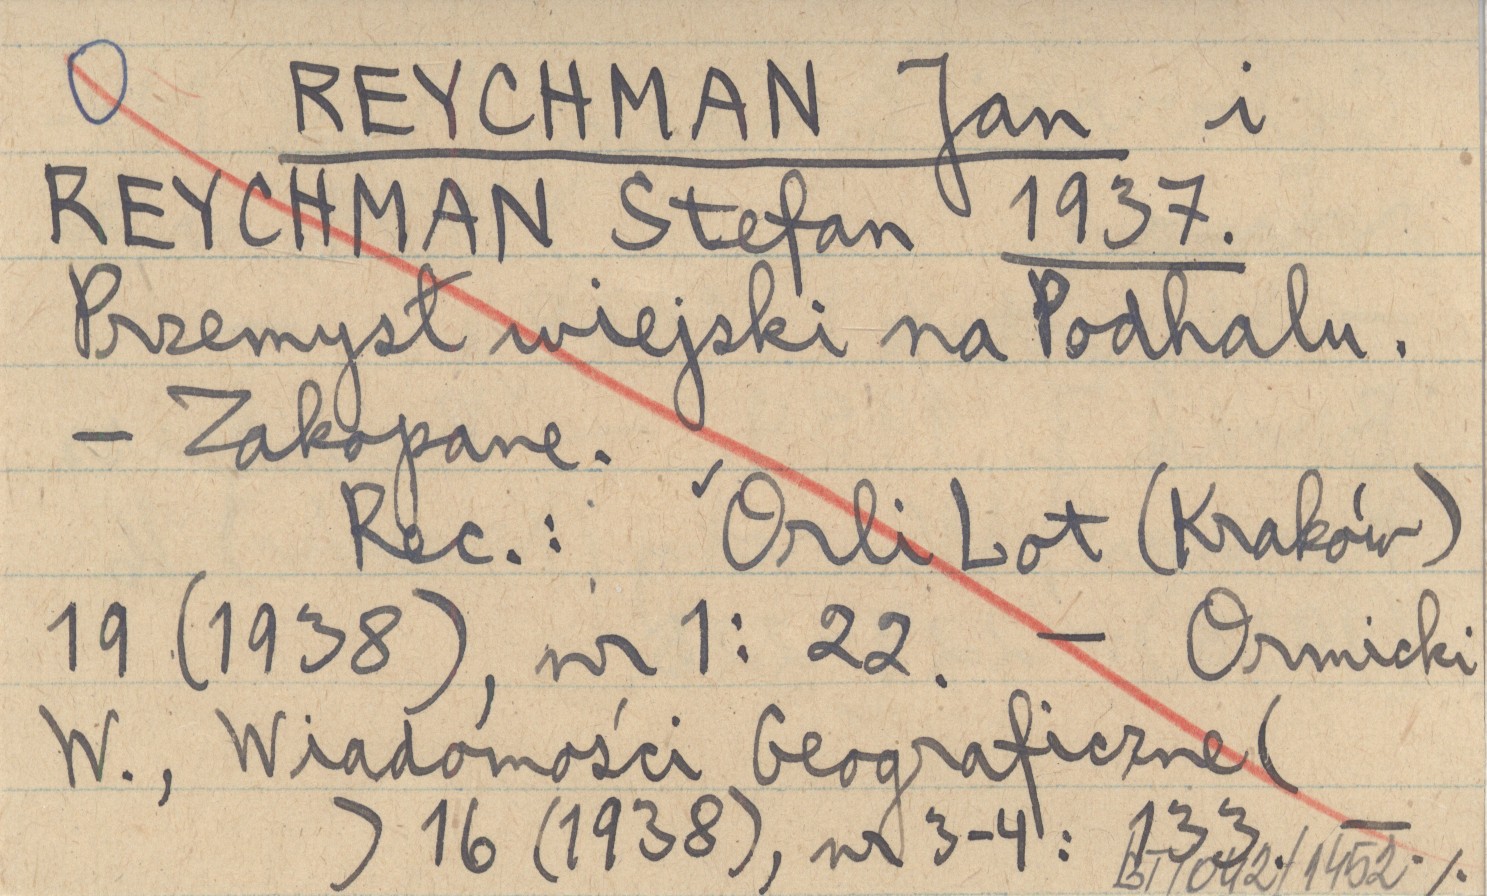 REYCHMAN Jan i
REYCHMAN Stefan 1937.
Przemysł wiejski na Podhalu.
– Zakopane.
Rec.: Orli Lot (Kraków)
19 (1938), nr 1: 22. – Ormicki
W., Wiadomości Geograficzne (
) 16 (1938), nr 3-4: 133. –
BT/042/1452 ./.